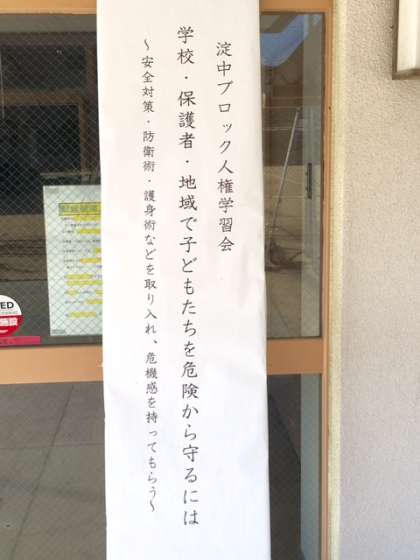 淀中ブロック人権学習会
学校・保護者・地域で子どもたちを危険から守るには
～安全対策・防衛術・護身術などを取り入れ、危機感を持ってもらう～